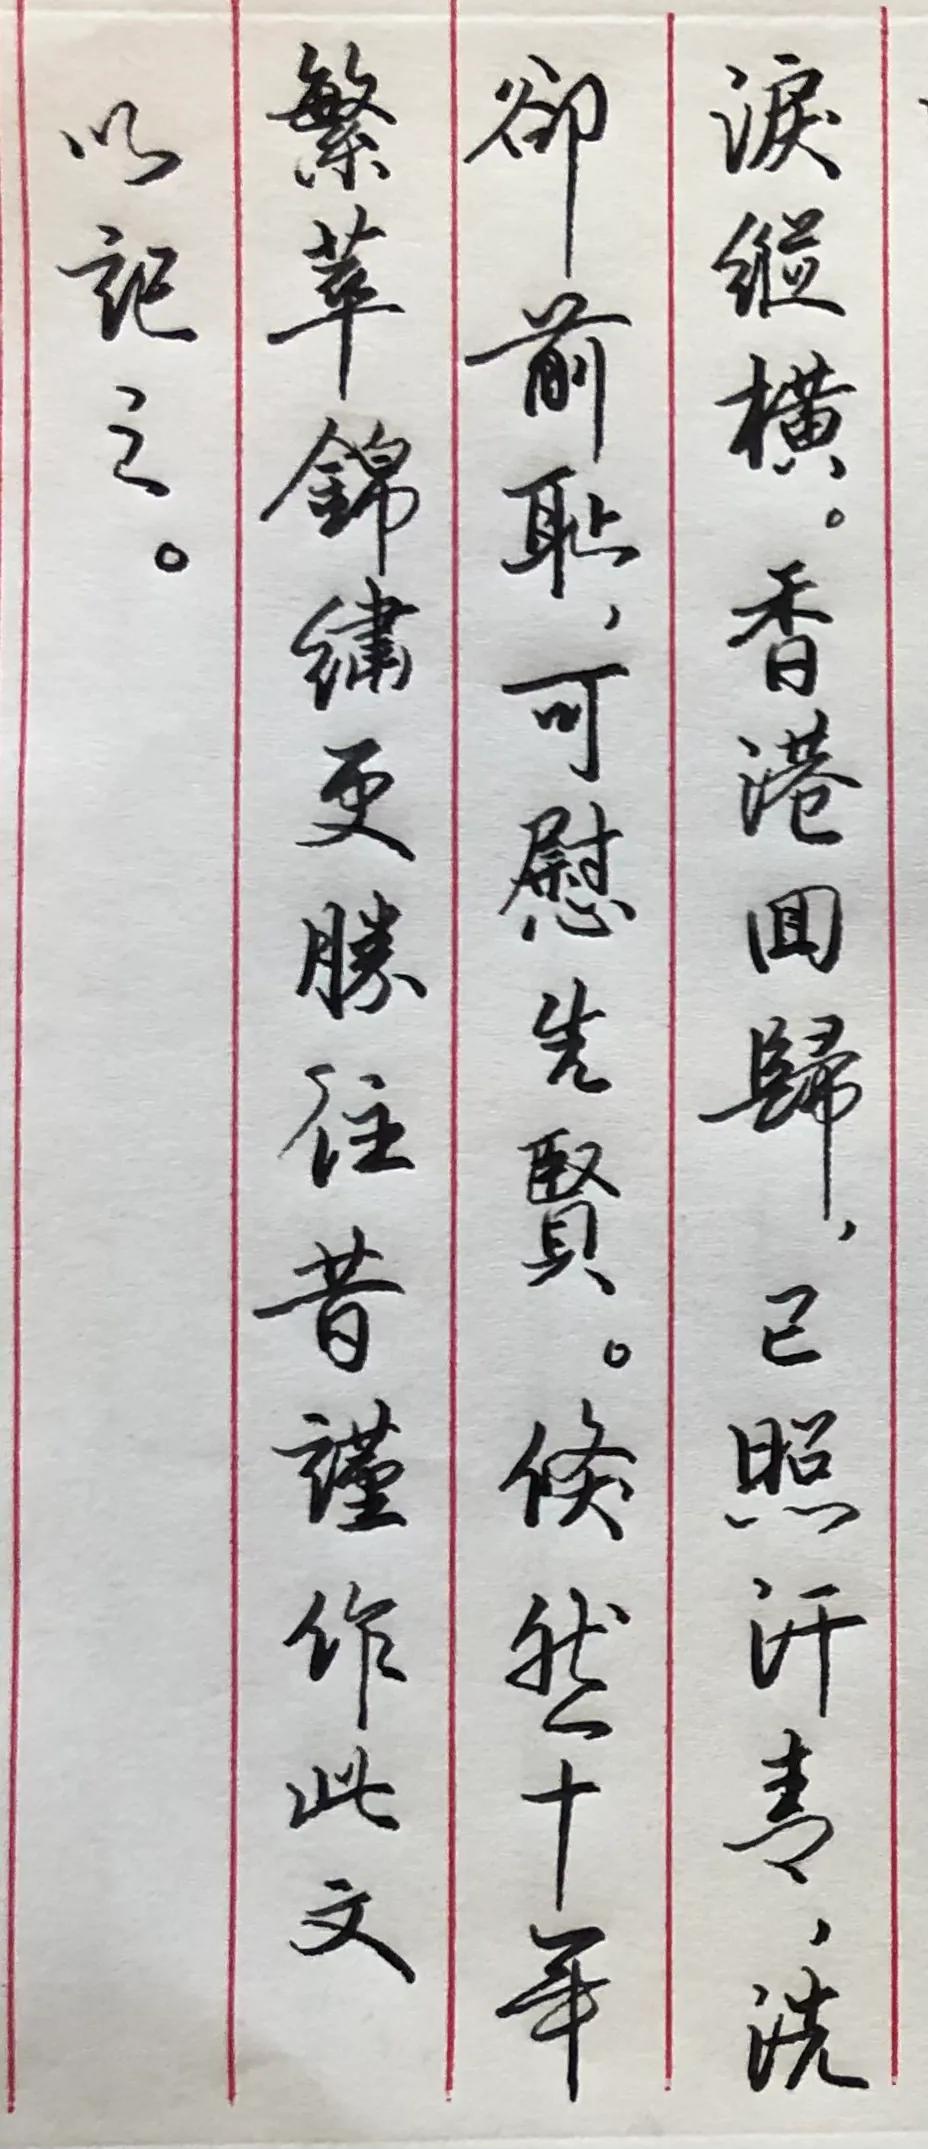 淚縱橫。香港回歸，已照汗青，洗
卻前恥，可慰先賢。倏然十年
繁華錦繡更勝往昔謹作此文
以記之。